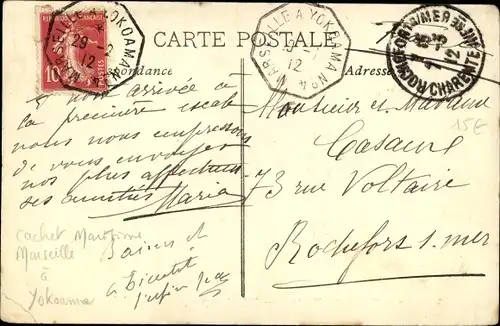 MARSEILLE A YOKOAMA
29-2
12
RÉPUBLIQUE FRANÇAISE
10
MARSEILLE A YOKOAMA
12
ROCHEFORT S/MER
CHARENTE
12
CARTE POSTALE
Correspondance
Adresse
A notre arrivée à
la première escale
nous nous empressons
de vous envoyer
nos plus affectueuses
amitiés Maria
Baisers et
à Bientôt
Monsieur et Madame
Casaine
73 rue Voltaire
Rochefort s. mer
15€
cachet Maritime
Marseille
à
Yokoama